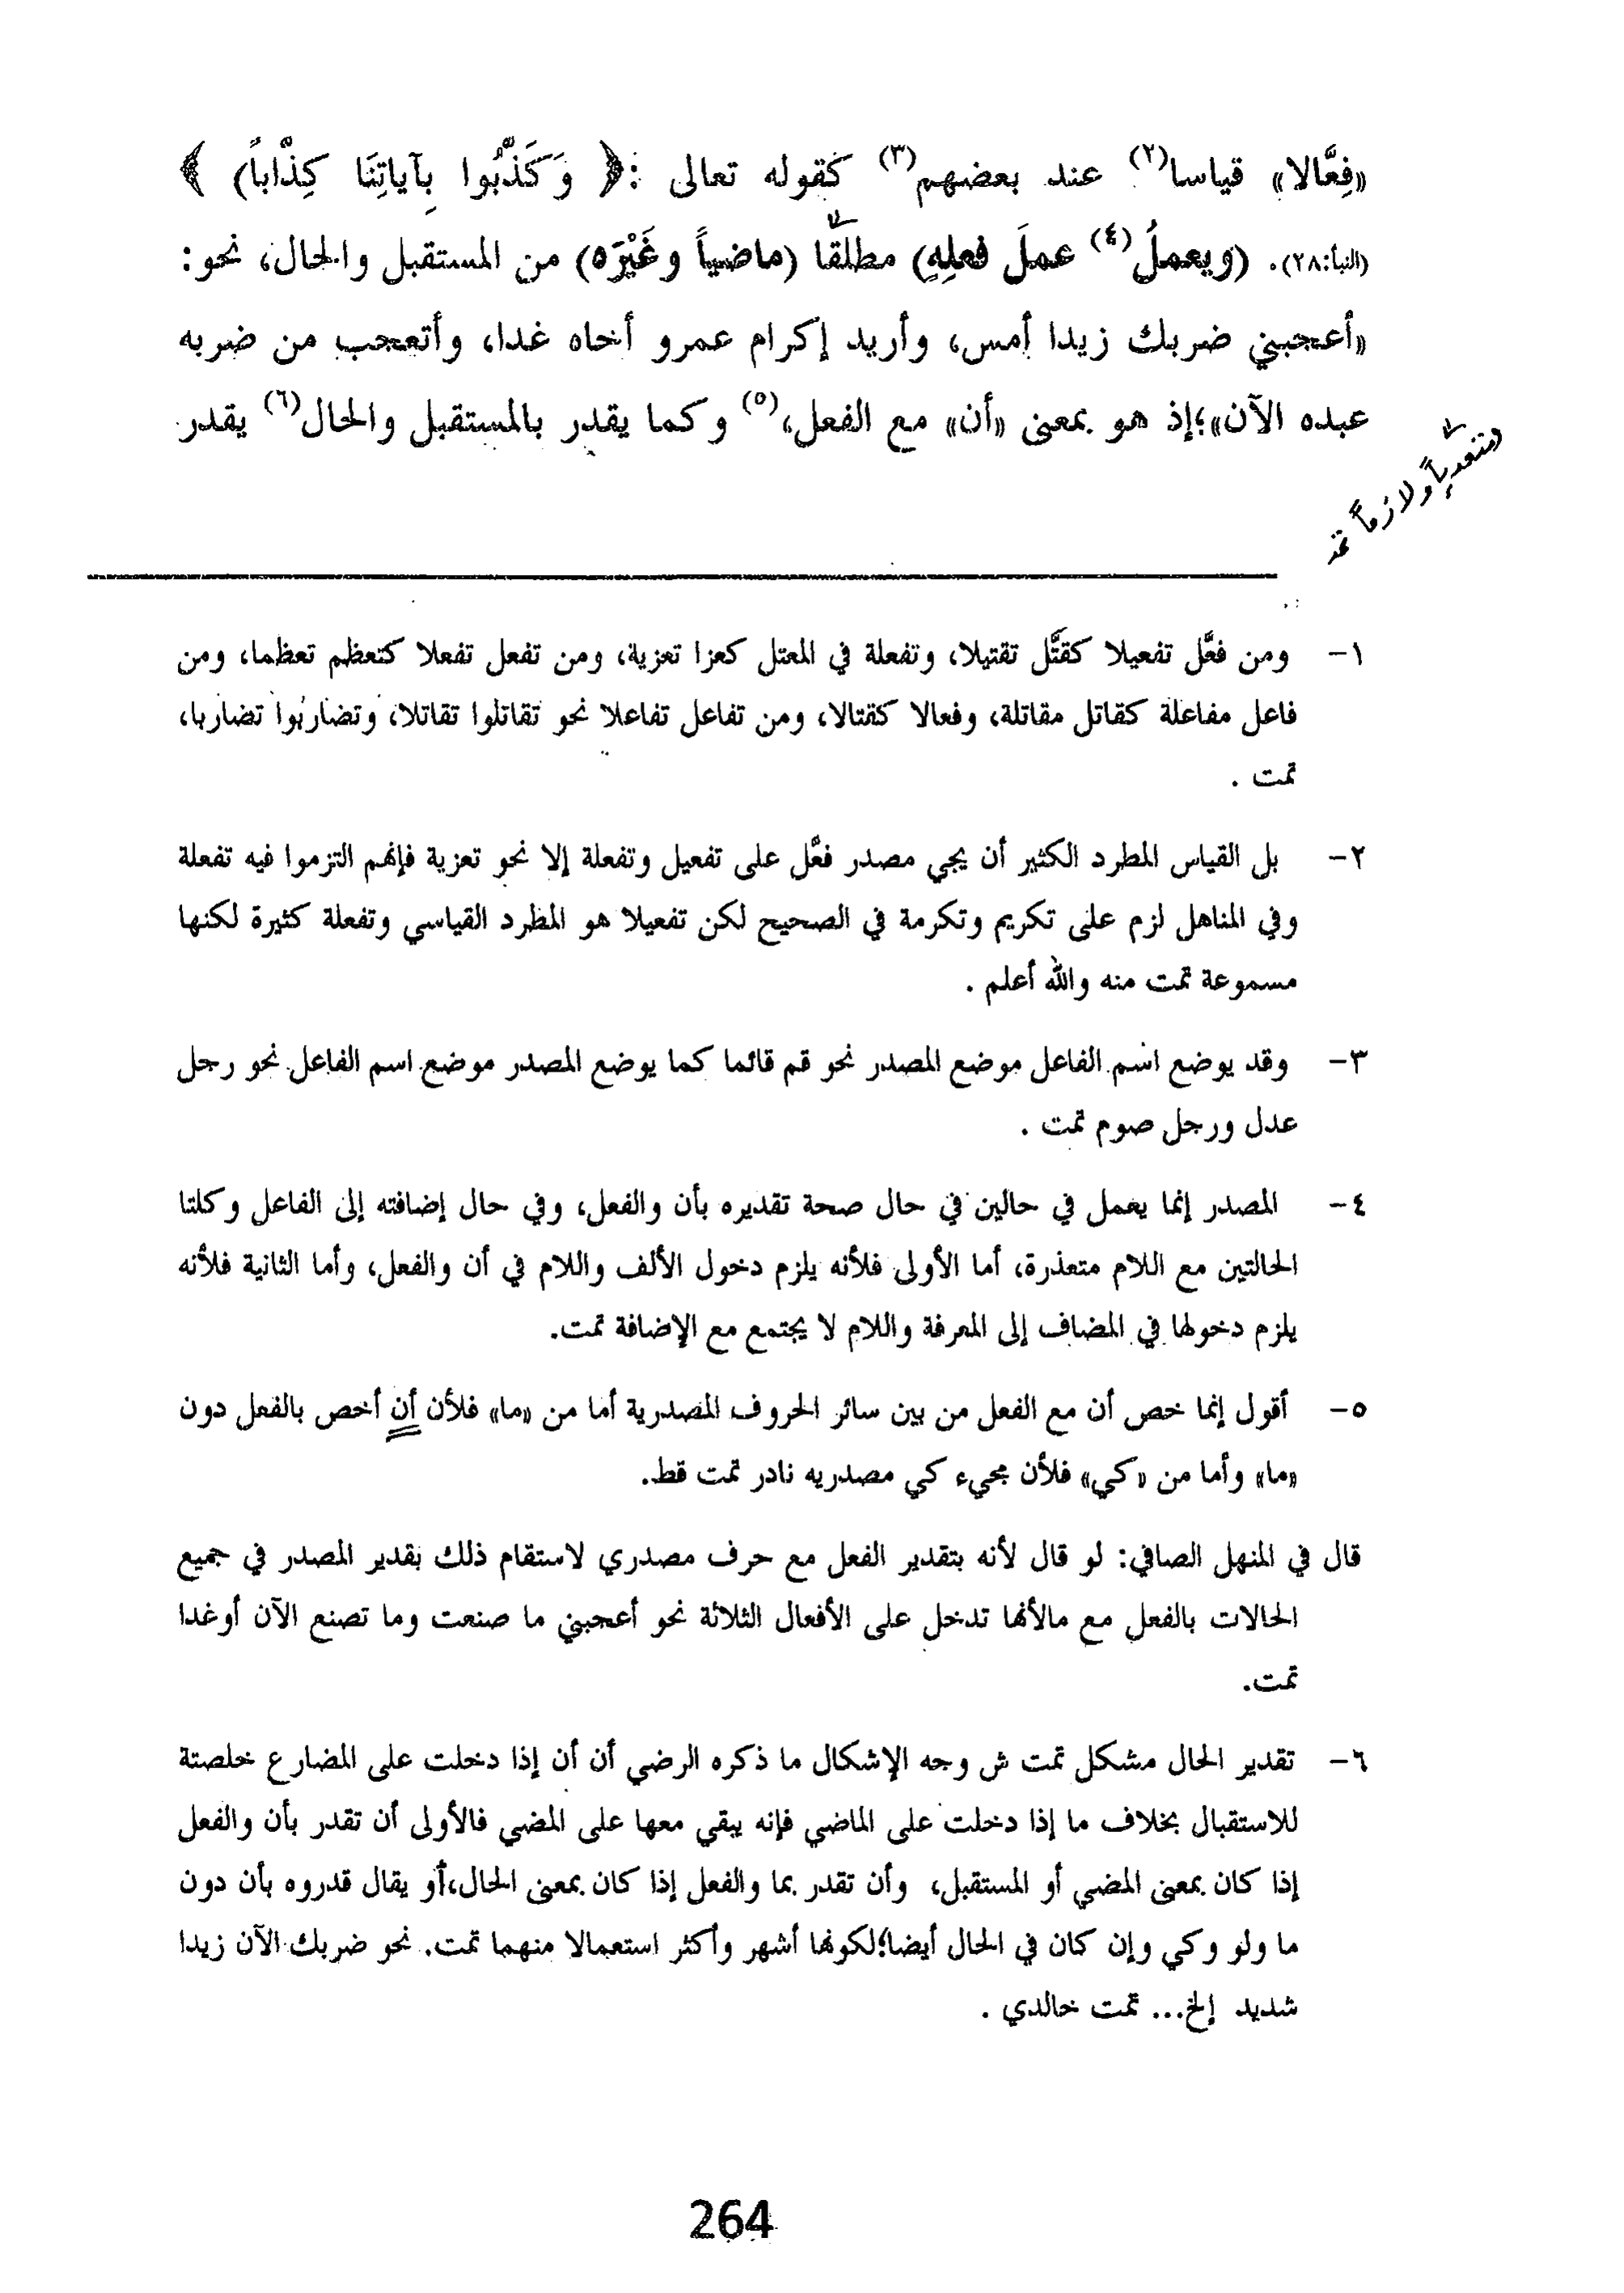 «فِعَّالا» قياسا(٢) عند بعضهم(٣) كقوله تعالى :﴿ وَكَذَّبُوا بِآيَاتِنَا كِذَّاباً) ﴾
(النبأ:٢٨). (ويعملُ(٤) عملَ فعلِهِ) مطلقًا (ماضياً وغَيْرَه) من المستقبل والحال، نحو:
«أعجبني ضربك زيدا أمس، وأريد إكرام عمرو أخاه غدا، وأتعجب من ضربه
عبده الآن»؛إذ هو بمعنى «أن» مع الفعل،(٥) وكما يقدر بالمستقبل والحال(٦) يقدر
متعدياً ولازماً
١- ومن فعَّل تفعيلا كقتَّل تقتيلا، وتفعلة في المعتل كعزا تعزية، ومن تفعل تفعلا كتعظم تعظما، ومن
فاعل مفاعلة كقاتل مقاتلة، وفعالا كقتالا، ومن تفاعل تفاعلا نحو تقاتلوا تقاتلا، وتضاربُوا تضاربا،
تمت .
٢- بل القياس المطرد الكثير أن يجي مصدر فعَّل على تفعيل وتفعلة إلا نحو تعزية فإنهم التزموا فيه تفعلة
وفي المناهل لزم على تكريم وتكرمة في الصحيح لكن تفعيلا هو المطرد القياسي وتفعلة كثيرة لكنها
مسموعة تمت منه والله أعلم .
٣- وقد يوضع اسم الفاعل موضع المصدر نحو قم قائما كما يوضع المصدر موضع اسم الفاعل نحو رجل
عدل ورجل صوم تمت .
٤- المصدر إنما يعمل في حالين في حال صحة تقديره بأن والفعل، وفي حال إضافته إلى الفاعل وكلتا
الحالتين مع اللام متعذرة، أما الأولى فلأنه يلزم دخول الألف واللام في أن والفعل، وأما الثانية فلأنه
يلزم دخولها في المضاف إلى المعرفة واللام لا يجتمع مع الإضافة تمت.
٥- أقول إنما خص أن مع الفعل من بين سائر الحروف المصدرية أما من «ما» فلأن أن أخص بالفعل دون
«ما» وأما من «كي» فلأن مجيء كي مصدريه نادر تمت قط.
قال في المنهل الصافي: لو قال لأنه بتقدير الفعل مع حرف مصدري لاستقام ذلك بقدير المصدر في جميع
الحالات بالفعل مع مالأنها تدخل على الأفعال الثلاثة نحو أعجبني ما صنعت وما تصنع الآن أوغدا
تمت.
٦- تقدير الحال مشكل تمت ش وجه الإشكال ما ذكره الرضي أن أن إذا دخلت على المضارع خلصتة
للاستقبال بخلاف ما إذا دخلت على الماضي فإنه يبقي معها على المضي فالأولى أن تقدر بأن والفعل
إذا كان بمعنى المضي أو المستقبل، وأن تقدر بما والفعل إذا كان بمعنى الحال،أو يقال قدروه بأن دون
ما ولو وكي وإن كان في الحال أيضا؛لكونها أشهر وأكثر استعمالا منهما تمت. نحو ضربك الآن زيدا
شديد إلخ... تمت خالدي .
264